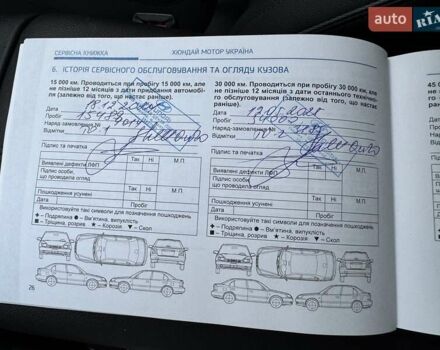 AUTO RIA
СЕРВІСНА КНИЖКА
ХЮНДАЙ МОТОР УКРАЇНА
6. ІСТОРІЯ СЕРВІСНОГО ОБСЛУГОВУВАННЯ ТА ОГЛЯДУ КУЗОВА
15 000 км. Проводиться при пробігу 15 000 км, але
не пізніше 12 місяців з дати придбання автомобі-
ля (залежно від того, що настає раніше).
Дата 18.12.20
Пробіг 15489
Наряд-замовлення №
Відмітки ТО-1
Підпис та печатка
Виявлені дефекти ЛФП Так Ні М.П.
Підпис особи,
що проводила огляд
Пошкодження усунені Так Ні М.П.
Дата Пробіг
Використовуйте такі символи для позначення пошкоджень
Подряпина Вм'ятина, випуклість
Тріщина, розрив Корозія Скол
30 000 км. Проводиться при пробігу 30 000 км, але
не пізніше 12 місяців з дати останнього технічно-
го обслуговування (залежно від того, що настає
раніше).
Дата
Пробіг
Наряд-замовлення №
Відмітки ТО-2
Підпис та печатка
Виявлені дефекти ЛФП Так Ні М.П.
Підпис особи,
що проводила огляд
Пошкодження усунені Так Ні М.П.
Дата Пробіг
Використовуйте такі символи для позначення пошкоджень
Подряпина Вм'ятина, випуклість
Тріщина, розрив Корозія Скол
26